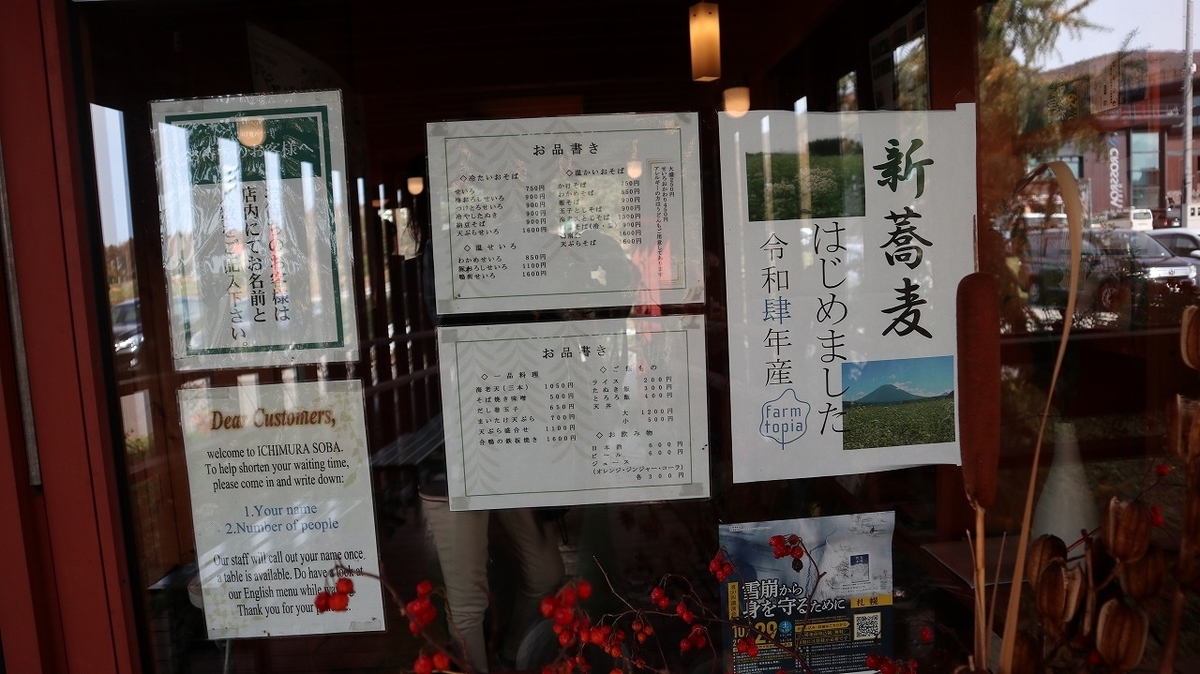 お客様へ
お客様は
店内にてお名前と
ご記入下さい。
Dear Customers,
welcome to ICHIMURA SOBA.
To help shorten your waiting time,
please come in and write down:
1.Your name
2.Number of people
Our staff will call out your name once
a table is available. Do have a look at
our English menu while
Thank you for your
お品書き
◇冷たいおそば
せいろ 750円
梅おろしせいろ 900円
つけとろせいろ 900円
冷やしたぬき 900円
納豆そば 900円
天ぷらせいろ 1600円
◇温せいろ
わかめせいろ 850円
豚おろしせいろ 1100円
鴨南せいろ 1600円
◇温かいおそば
かけそば 750円
わかめそば 850円
900円
玉子とじそば 900円
1300円
900円
天ぷらそば 1600円
大盛
お品書き
◇一品料理
海老天(三本) 1050円
そば焼き味噌 500円
だし巻玉子 650円
まいたけ天ぷら 700円
天ぷら盛合せ 1100円
合鴨の鉄板焼き 1600円
◇ご飯もの
ライス 200円
たぬき飯 300円
とろろ飯 400円
天丼
大 1200円
小 500円
◇お飲み物
日本酒 600円
ビール 600円
ジュース
(オレンジ・ジンジャー・コーラ)
各300円
新蕎麦
はじめました
令和肆年産
farm
topia
雪崩から
身を守るために
札幌
10 29 土